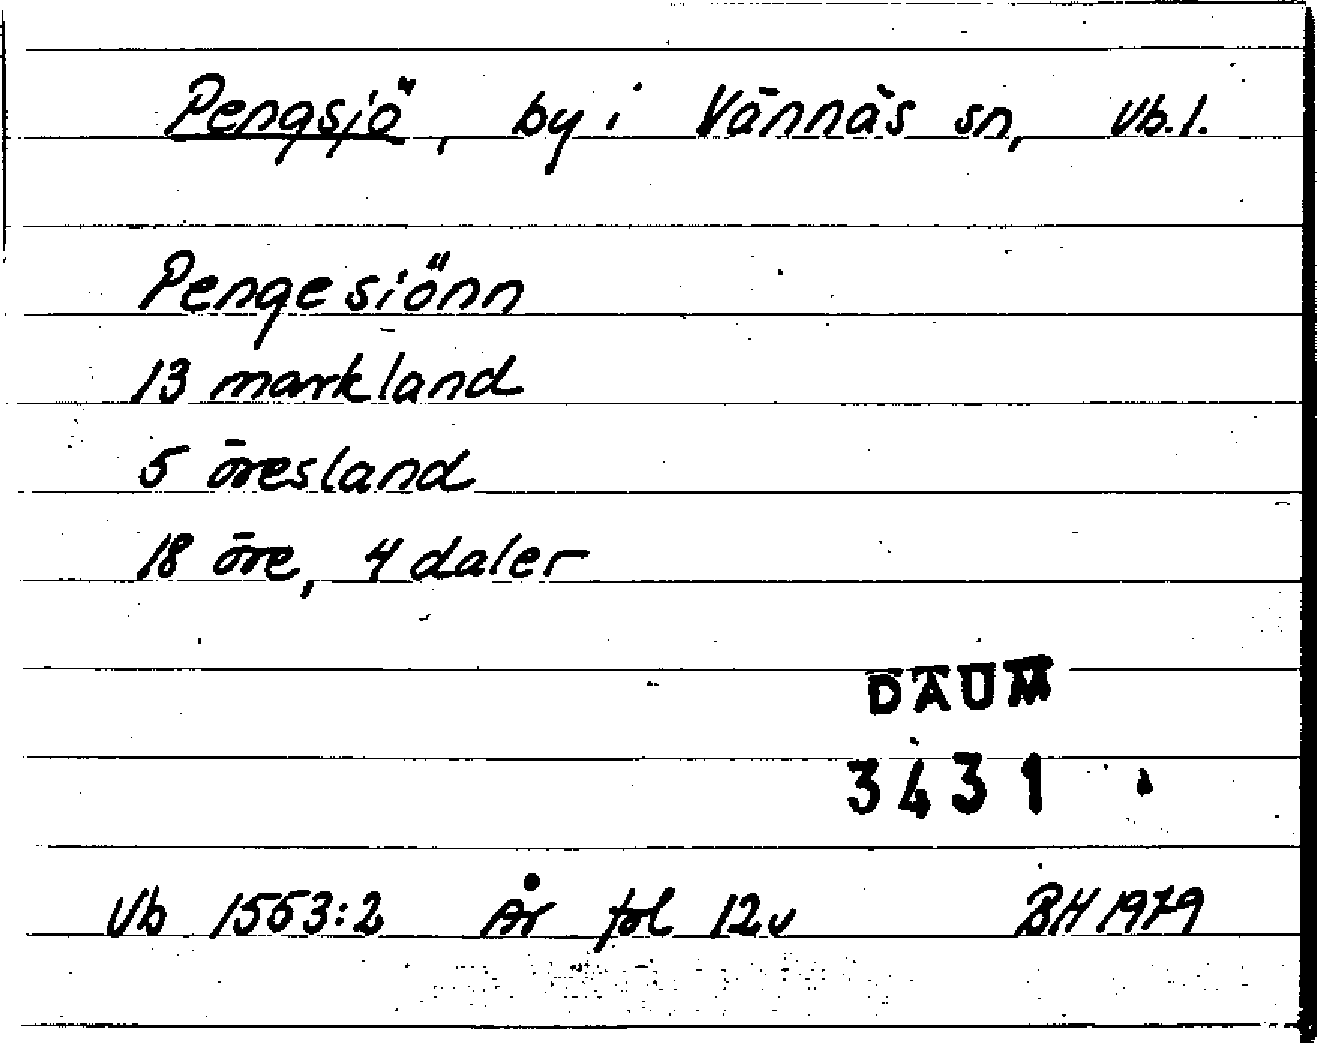 Pengsjö, by i Vännäs sn, Vb.l.
Pengesiönn
13 markland
5 öresland
18 öre, 4 daler
DAUM
3431
Vb 1553:2 År fol 12v BH 1979